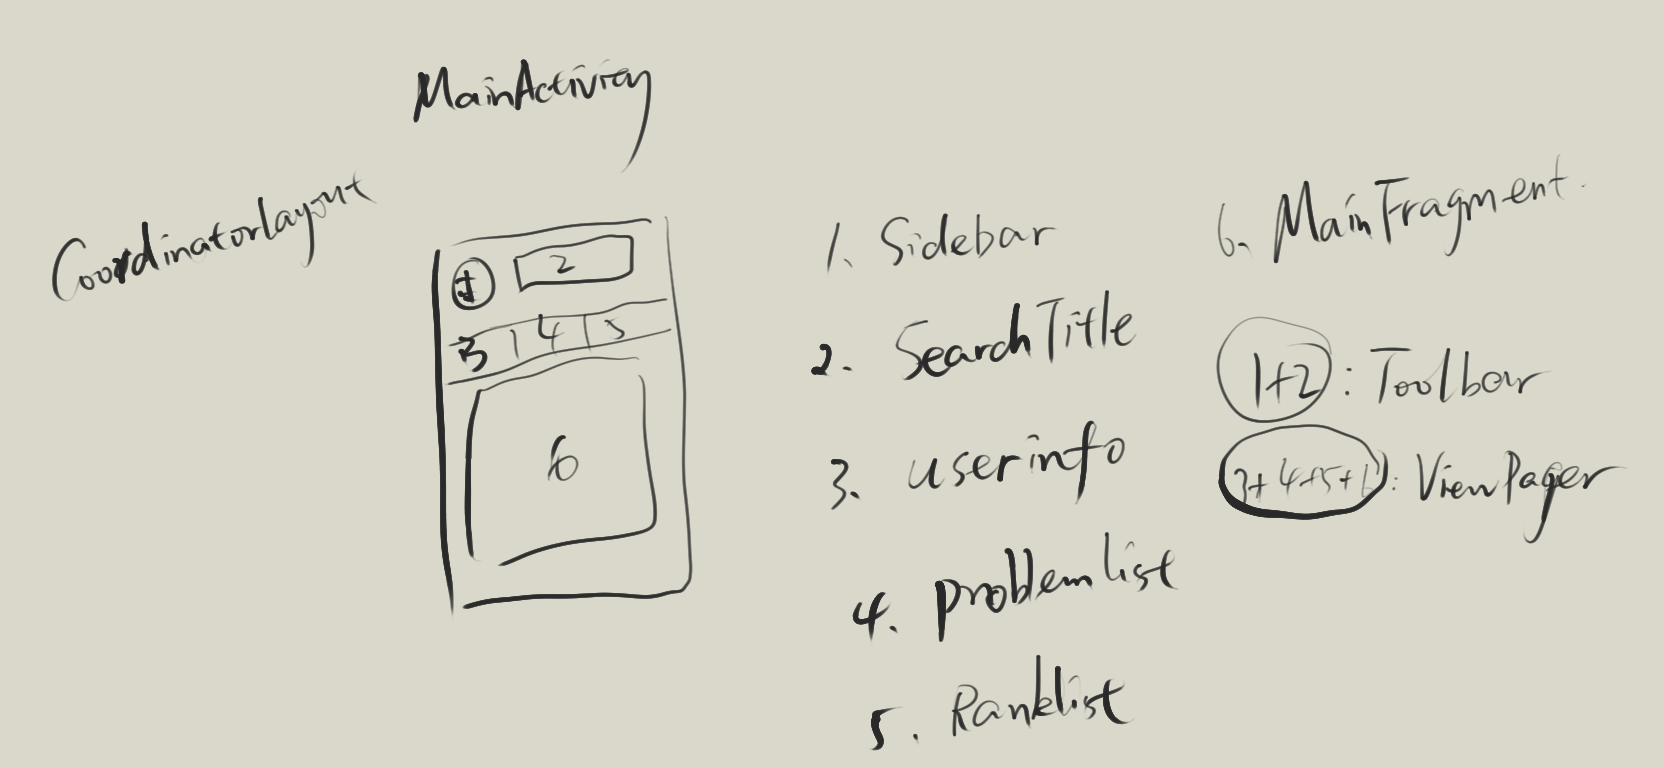 MainActivity
CoordinatorLayout
1
2
3 | 4 | 5
6
1. Sidebar
2. SearchTitle
3. userinfo
4. problemlist
5. Ranklist
6. MainFragment.
1+2 : Toolbar
3+4+5+6 : ViewPager